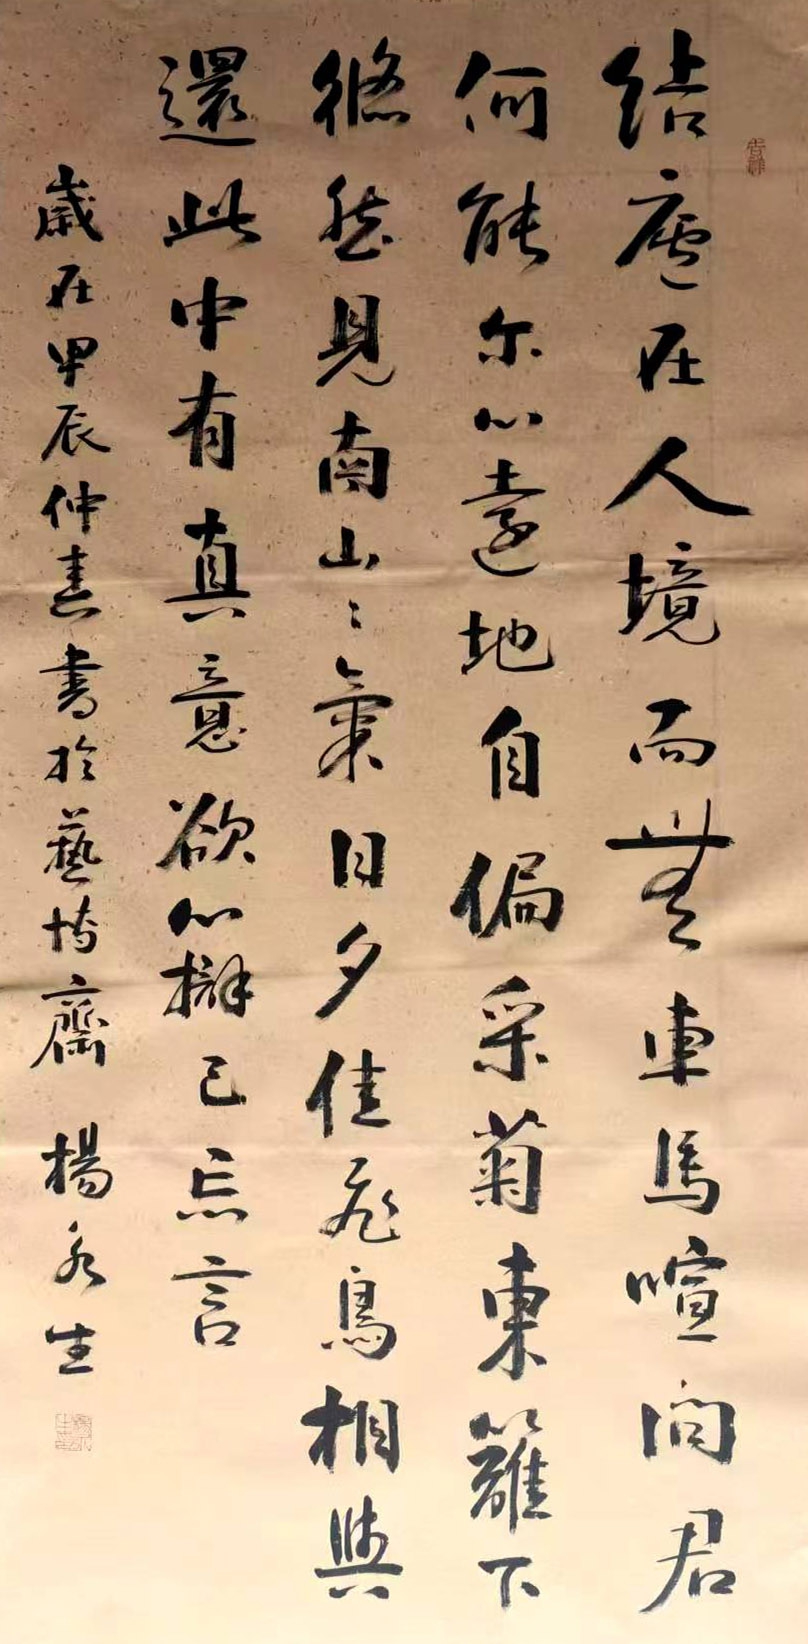 結廬在人境而無車馬喧問君
何能尔心遠地自偏采菊東籬下
悠然見南山〻氣日夕佳飛鳥相與
還此中有真意欲心辯已忘言
歲在甲辰仲春書於藝坊齋 楊永生